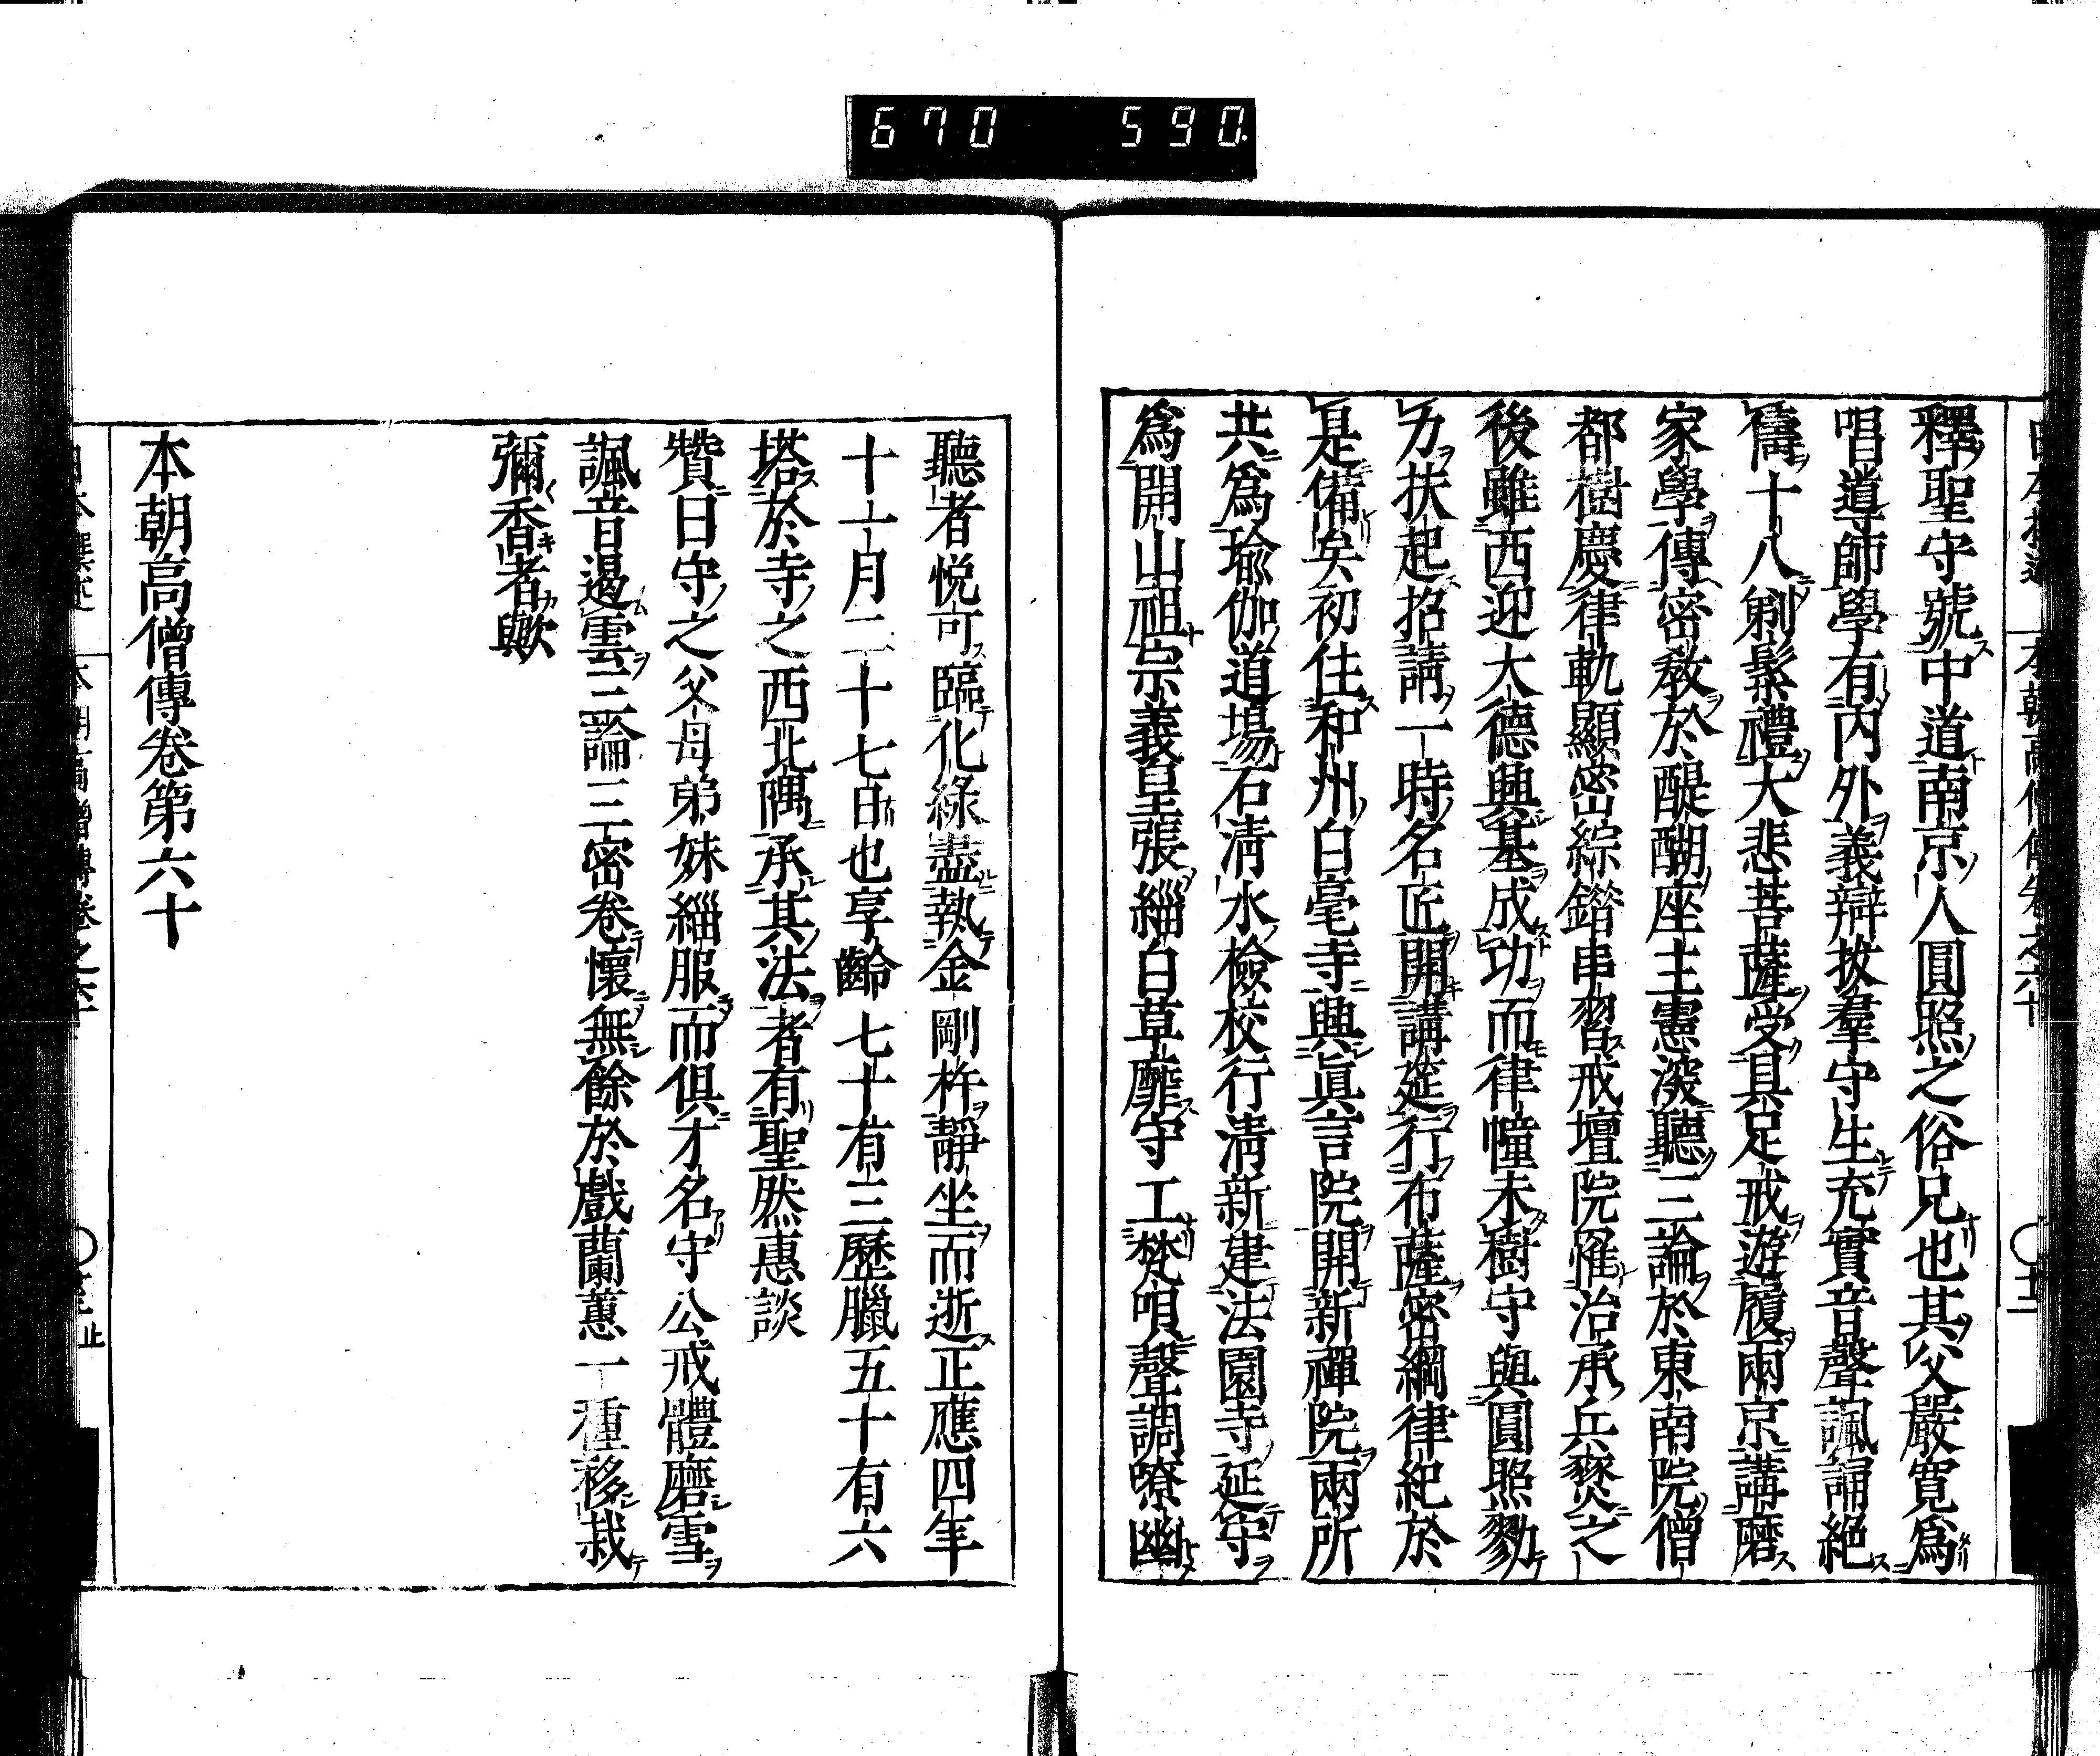 670 590
釋聖守號中道南京人圓照之俗兄也其父嚴寬爲
唱導師學有內外義辯拔羣守生充實音聲諷誦絕
儔十八剃髮禮大悲菩薩受具足戒遊履兩京講磨
家學傳密教於醍醐座主憲深聽三論於東南院僧
都樹慶律軌顯密綜鍇串習戒壇院罹治承兵燹之
後雖西迎大德興基成功而律幢未樹守與圓照勠
力扶起招請一時名匠開講莚行布薩密綱律紀於
是備矣初住和州白毫寺興眞言院開新禪院兩所
共爲瑜伽道場石淸水檢校行淸新建法園寺延守
爲開山祖宗義皇張緇白草靡守工梵唄聲調嘹幽
聽者悅可臨化緣盡執金剛杵靜坐而逝正應四年
十一月二十七日也享齡七十有三歷臘五十有六
塔於寺之西北隅承其法者有聖然惠談
贊曰守之父母弟妹緇服而俱才名守公戒體磨雪
諷音遏雲三論三密卷懷無餘於戲蘭蕙一種移栽
彌香者歟
本朝高僧傳卷第六十